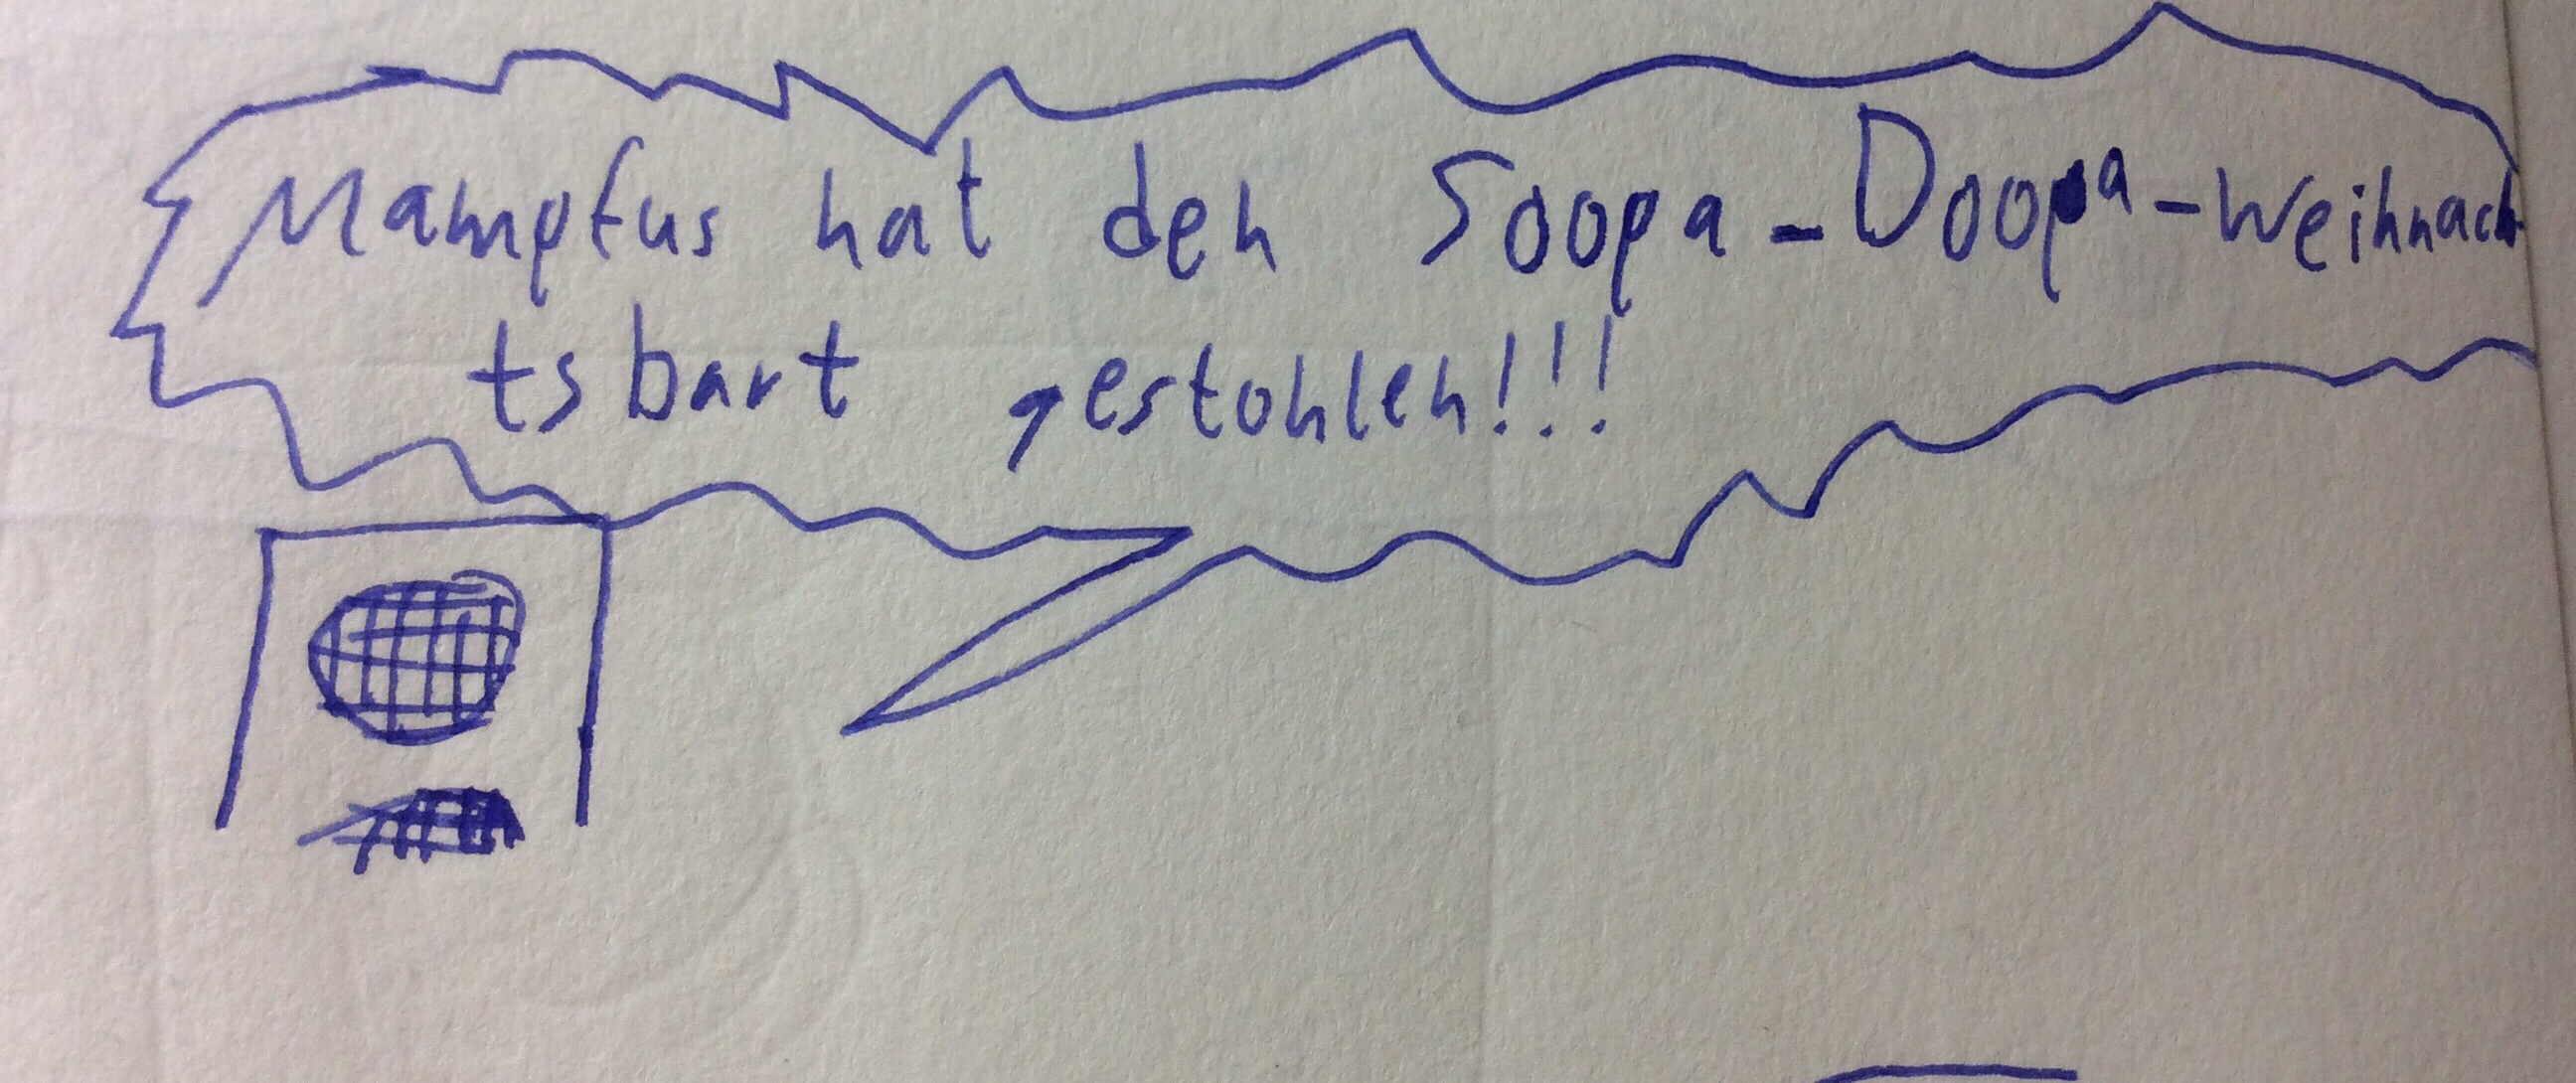 Mampfus hat den Soopa-Doopa-Weihnach
tsbart gestohlen!!!